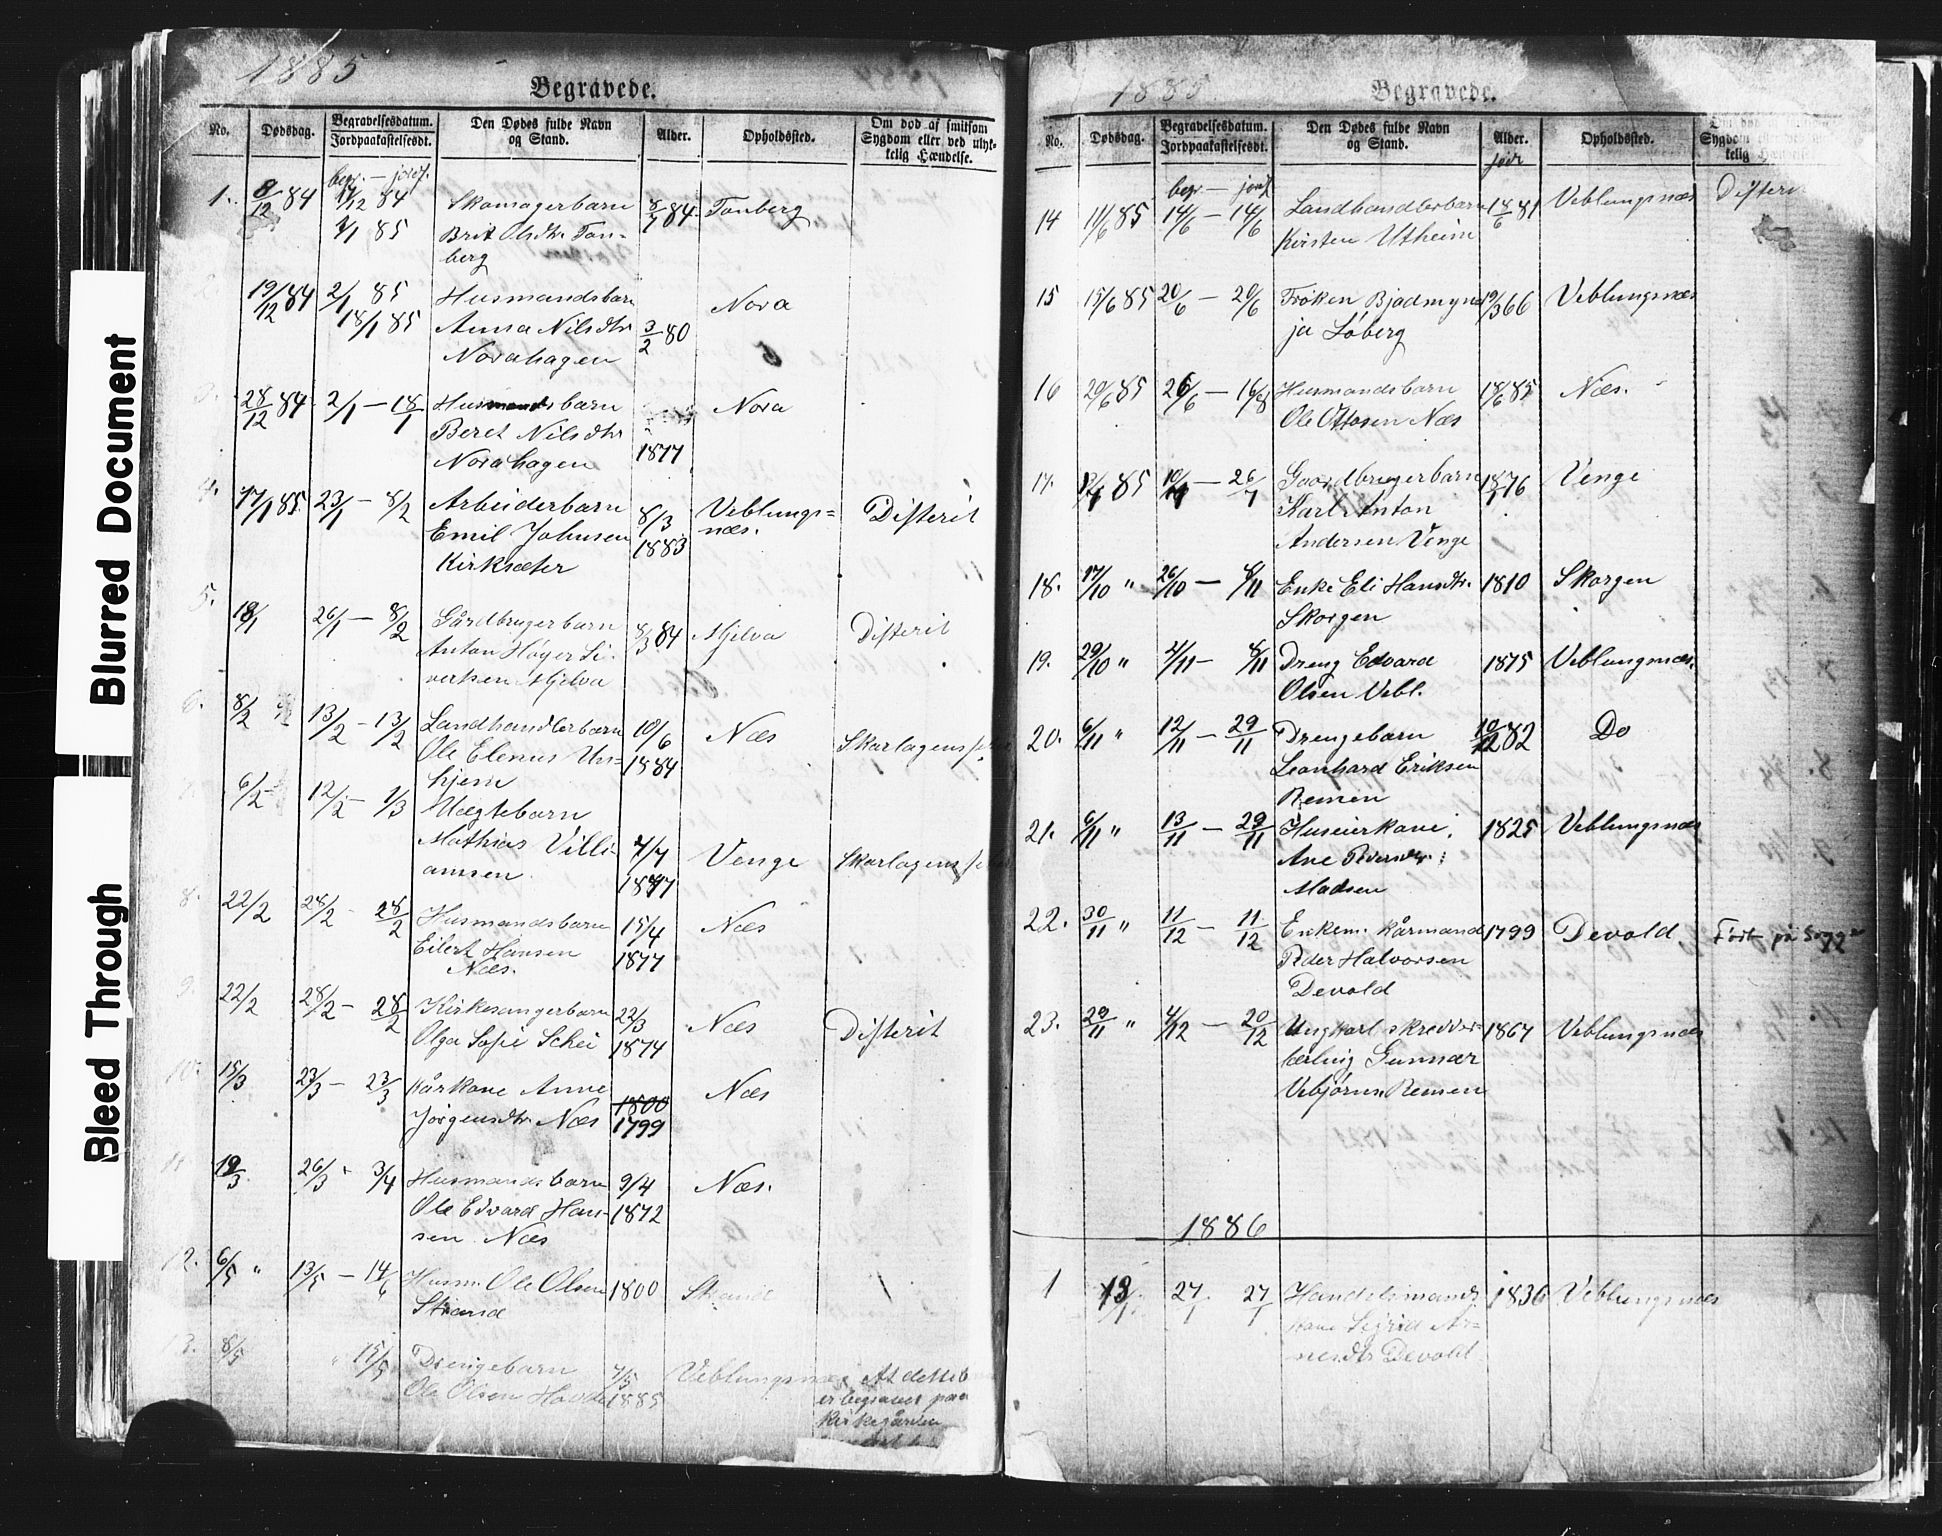 Blurred Document
Bleed Through
1885
Begravede.
No.
Dødsdag.
Begravelsesdatum.
Jordpaakastelsesdt.
Den Dødes fulde Navn
og Stand.
Alder.
Opholdssted.
Om død af smitsom
Sygdom eller ved ulyk-
kelig Hændelse.
begr. — jordf.
1. 8/12 84 17/12 84 Skomagerbarn 8/7 84 Tonberg
1/1 85 Brit Olsdtr Ton-
berg
19/12 84 2/1 85 Husmandsbarn Nora
18/1 85 Anna Nilsdtr 3/2 80
Norahagen
3. 28/12 84 2/1 — 18/1 Husmandsbarn Nora
Beret Nilsdtr
Norahagen 1877
4. 17/1 85 23/1 — 8/2 Arbeiderbarn 8/3 Veblungs= Difterit
Emil Johnsen 1883 næs.
Kirksæter
5. 18/1 26/1 — 8/2 Gårdbrugerbarn 8/3 84 Mjelva Difterit
Anton Høyer Si-
vertsen Mjelva
6. 8/2 13/2 — 13/2 Landhandlerbarn 10/6 Næs Skarlagens
Ole Elenus Un- 1884
hjem
6/2 12/2 — 1/3 Lægtebarn
Mathias Villi- 4/7 Venge Skarlagens
amsen 1877
8. 22/2 28/2 - 28/2 Husmandsbarn 15/4 Næs
Eilert Hansen 1877
Næs.
9. 22/2 28/2 — 28/2 Kirkesangerbarn 22/3 Næs Difterit
Olga Sofie Schei 1874
10. 15/3 23/3 — 23/3 Kårkone Anne 1800 Næs
Jørgensdtr Næs 1799
11. 19/3 26/3 - 3/4 Husmandsbarn 9/4 Næs.
Ole Edvard Han- 1872
sen Næs
12. 6/5 " 13/5 — 14/6 Husm. Ole Olsen 1800 Strande
Strand
13. 8/5 " 15/5 Drengebarn 4/5 Veblungsnæs At dette
Ole Olsen 1885
er begravet paa
Kirkegården
1885
Begravede.
No.
Dødsdag.
Begravelsesdatum.
Jordpaakastelsesdt.
Den Dødes fulde Navn
og Stand.
Alder.
Opholdssted.
Sygdom eller ved
kelig
begr. — jordf
14 11/6 85 14/6 — 14/6 Landhandlerbarn 18/6 81 Veblungsnæs Difteri
Kirsten Utheim
15 15/6 85 20/6 — 20/6 Frøken Bjadmyn 19/3 66 Veblungsnæs
ja Løberg
16 20/6 85 26/6 — 16/8 Husmandsbarn 18/6 85 Næs.
Ole Ottosen Næs
17. 12/7 85 — 26/7 Gaardbrugerbarn 18/1 76 Venge
Karl Anton
Andersen Venge
18. 17/10 " 26/10 — 8/11 Enke Eli Hansdtr. 1810 Skorgen
Skorgen
19. 29/10 " 4/11 — 8/11 Dreng Edvard 1875 Veblungsnæs.
Olsen Vebl.
20. 6/11 " 12/11 — 29/11 Drengebarn 10/12 82 Do
Leonhard Eriksen
Remen
21. 6/11 " 13/11 — 29/11 Huseierkone 1825 Veblungsnæs
Ane
Madsen
22. 30/11 " 11/12 — 11/12 Enkem. kårmand 1799 Devold. Født på Sogge
Peder Halvorsen
Devold
23. 29/11 " 4/12 — 20/12 Ungkarl skredder- 1867 Veblungsnæs
lærling Gunnar
Vebjørns. Remen
1886
1 13/1 27/1 27/1 Handelsmands 1836 Veblungsnæs
kone Sigrid Ar-
nesdtr Devold